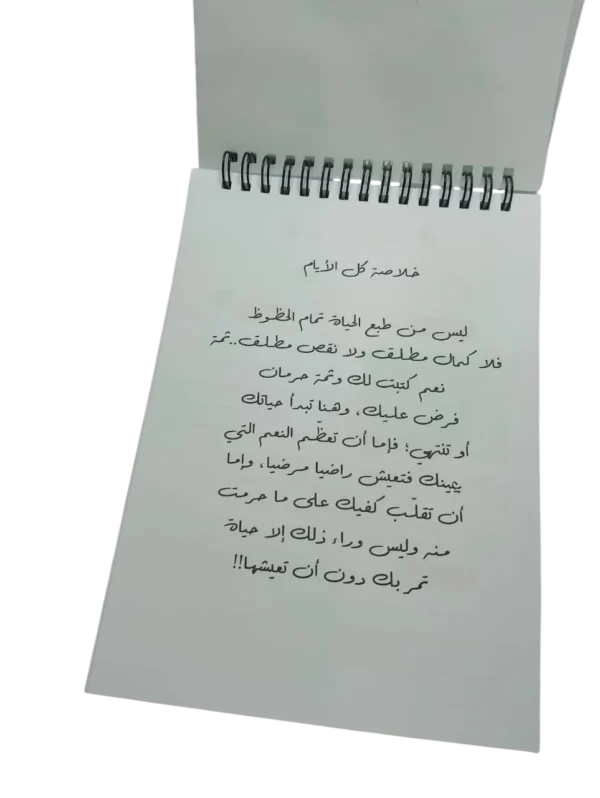 خلاصة كل الأيام
ليس من طبع الحياة تمام الحظوظ
فلا كمال مطلق ولا نقص مطلق..ثمة
نعم كتبت لك وثمة حرمان
فرض عليك، وهنا تبدأ حياتك
أو تنتهي؛ فإما أن تعظّم النعم التي
بيمينك فتعيش راضيا مرضيا، وإما
أن تقلّب كفيك على ما حرمت
منه وليس وراء ذلك إلا حياة
تمر بك دون أن تعيشها!!